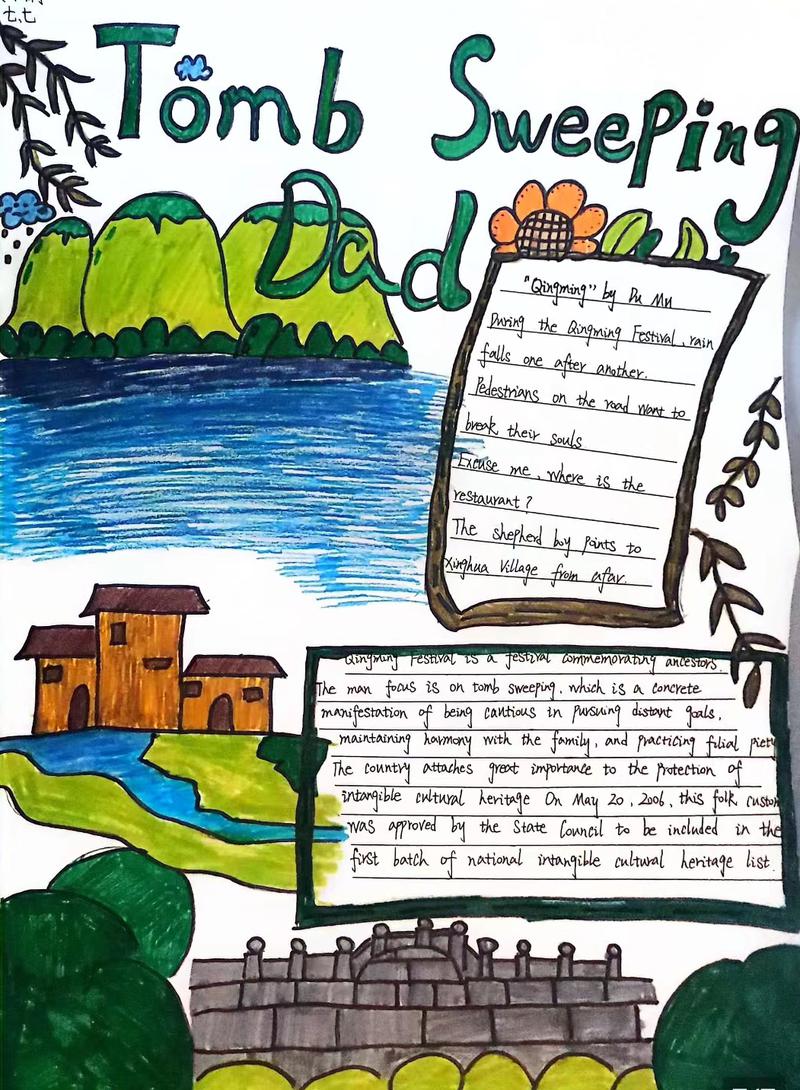 七.七
Tomb Sweeping
Dad
"Qingming" by Du Mu
During the Qingming Festival, rain
falls one after another.
Pedestrians on the road want to
break their souls
Excuse me, where is the
restaurant?
The shepherd boy points to
Xinghua Village from afar.
Qingming Festival is a festival commemorating ancestors.
The man focus is on tomb sweeping, which is a concrete
manifestation of being cautious in pursuing distant goals,
maintaining harmony with the family, and practicing filial piety
The country attaches great importance to the protection of
intangible cultural heritage On May 20, 2006, this folk custom
was approved by the State Council to be included in the
first batch of national intangible cultural heritage list.